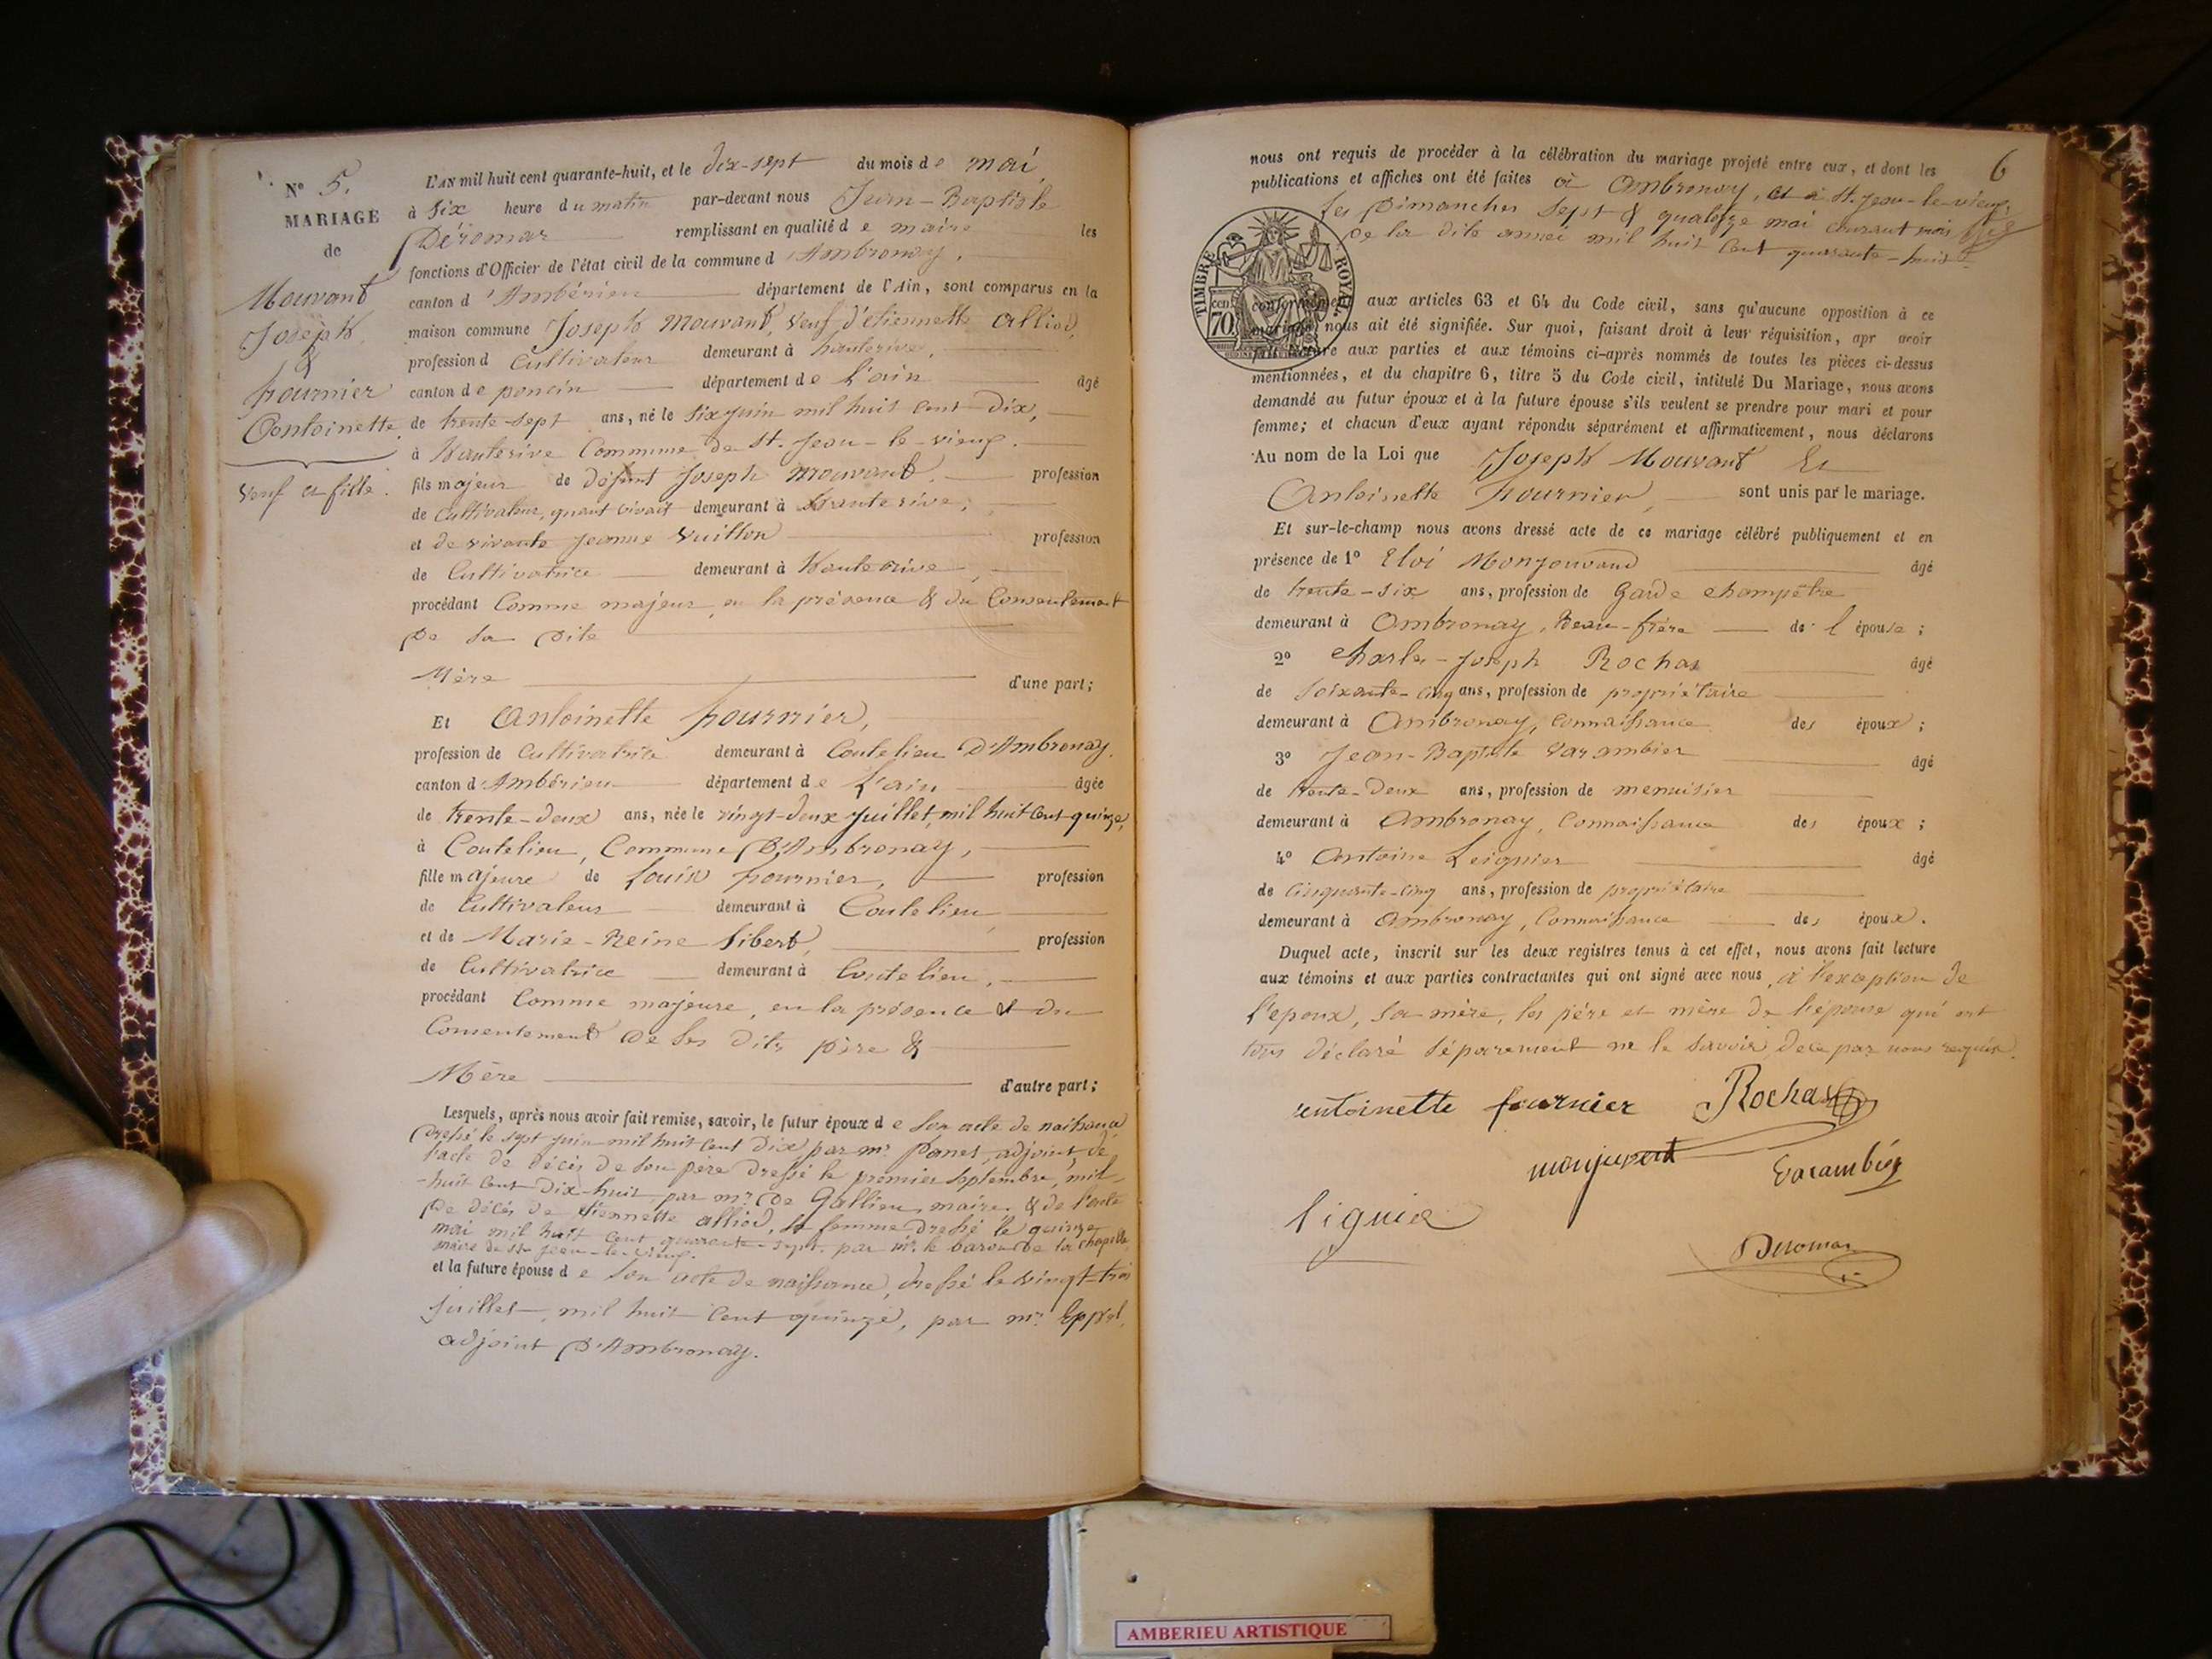 N° 5.
MARIAGE
de
Mouvant
Joseph
&
fournier
Antoinette
Veuf et fille.
L'AN mil huit cent quarante-huit, et le dix-sept du mois de mai,
à six heure du matin par-devant nous Jean-Baptiste
Déromas remplissant en qualité de maire les
fonctions d'Officier de l'état civil de la commune d'Ambronay,
canton d'Ambérieu département de l'Ain, sont comparus en la
maison commune Joseph Mouvant, veuf d'étiennette alliod,
profession d cultivateur demeurant à hauterive,
canton de poncin département de l'ain âgé
de trente-sept ans, né le six juin mil huit cent dix,
à hauterive Commune de St. Jean-le-vieux.
fils majeur de défunt Joseph Mouvant, profession
de Cultivateur, quant vivait demeurant à hauterive;
et de vivante jeanne Vuitton profession
de Cultivatrice demeurant à hauterive,
procédant Comme majeur, en la présence & du Consentement
De sa Dite
Mère d'une part;
Et Antoinette fournier,
profession de cultivatrice demeurant à Coutelieu D'Ambronay.
canton d'Ambérieu département de L'ain âgée
de trente-deux ans, née le vingt-deux juillet, mil huit cent quinze,
à Coutelieu, Commune D'Ambronay,
fille majeure de Louis fournier, profession
de Cultivateur demeurant à Coutelieu,
et de Marie-Reine Sibert, profession
de Cultivatrice demeurant à Coutelieu,
procédant Comme majeure, en la présence & du
Consentement De ses Dits père &
Mère d'autre part;
Lesquels, après nous avoir fait remise, savoir, le futur époux de son acte de naissance
Dressé le sept juin mil huit cent Dix par mr. adjoint, de
l'acte de Décès de son père Dressé le premier septembre, mil
-huit Cent Dix-huit, par mr. De Gallieu, maire & de l'acte
De décès de étiennette alliod, sa femme Dressé le quinze
mai mil huit Cent quarante-sept par mr. le baron De la chapelle
maire de St-Jean-le-vieux.
et la future épouse de son acte de naissance, dressé le vingt-trois
Juillet, mil huit Cent quinze, par mr.
adjoint D'Ambronay.
6
nous ont requis de procéder à la célébration du mariage projeté entre eux, et dont les
publications et affiches ont été faites à Ambronay, et à St. Jean-le-vieux,
les Dimanches sept & quatorze mai courant mois
De la dite année mil huit Cent quarante-huit
TIMBRE ROYAL
70 cen
conformément aux articles 63 et 64 du Code civil, sans qu'aucune opposition à ce
mariage nous ait été signifiée. Sur quoi, faisant droit à leur réquisition, apr avoir
fait lecture aux parties et aux témoins ci-après nommés de toutes les pièces ci-dessus
mentionnées, et du chapitre 6, titre 5 du Code civil, intitulé Du Mariage, nous avons
demandé au futur époux et à la future épouse s'ils veulent se prendre pour mari et pour
femme; et chacun d'eux ayant répondu séparément et affirmativement, nous déclarons
Au nom de la Loi que Joseph Mouvant Et
Antoinette fournier, sont unis par le mariage.
Et sur-le-champ nous avons dressé acte de ce mariage célébré publiquement et en
présence de 1° Eloi Monjouvand âgé
de trente-six ans, profession de Garde champêtre
demeurant à Ambronay, Beau-frère de l épouse;
2° Charles-Joseph Rochas âgé
de soixante-cinq ans, profession de propriétaire
demeurant à Ambronay, connaissance des époux;
3° Jean-Baptiste Varambier âgé
de trente-deux ans, profession de menuisier
demeurant à Ambronay, Connaissance des époux;
4° Antoine Leignier âgé
de cinquante-cinq ans, profession de propriétaire
demeurant à Ambronay, Connaissance des époux.
Duquel acte, inscrit sur les deux registres tenus à cet effet, nous avons fait lecture
aux témoins et aux parties contractantes qui ont signé avec nous, à l'exception de
l'époux, sa mère, les père et mère De l'épouse qui ont
tous déclaré séparément ne le savoir, de ce par nous requis.
antoinette fournier Rochas
monjuvent Varambier
liguier
Deromas
AMBERIEU ARTISTIQUE